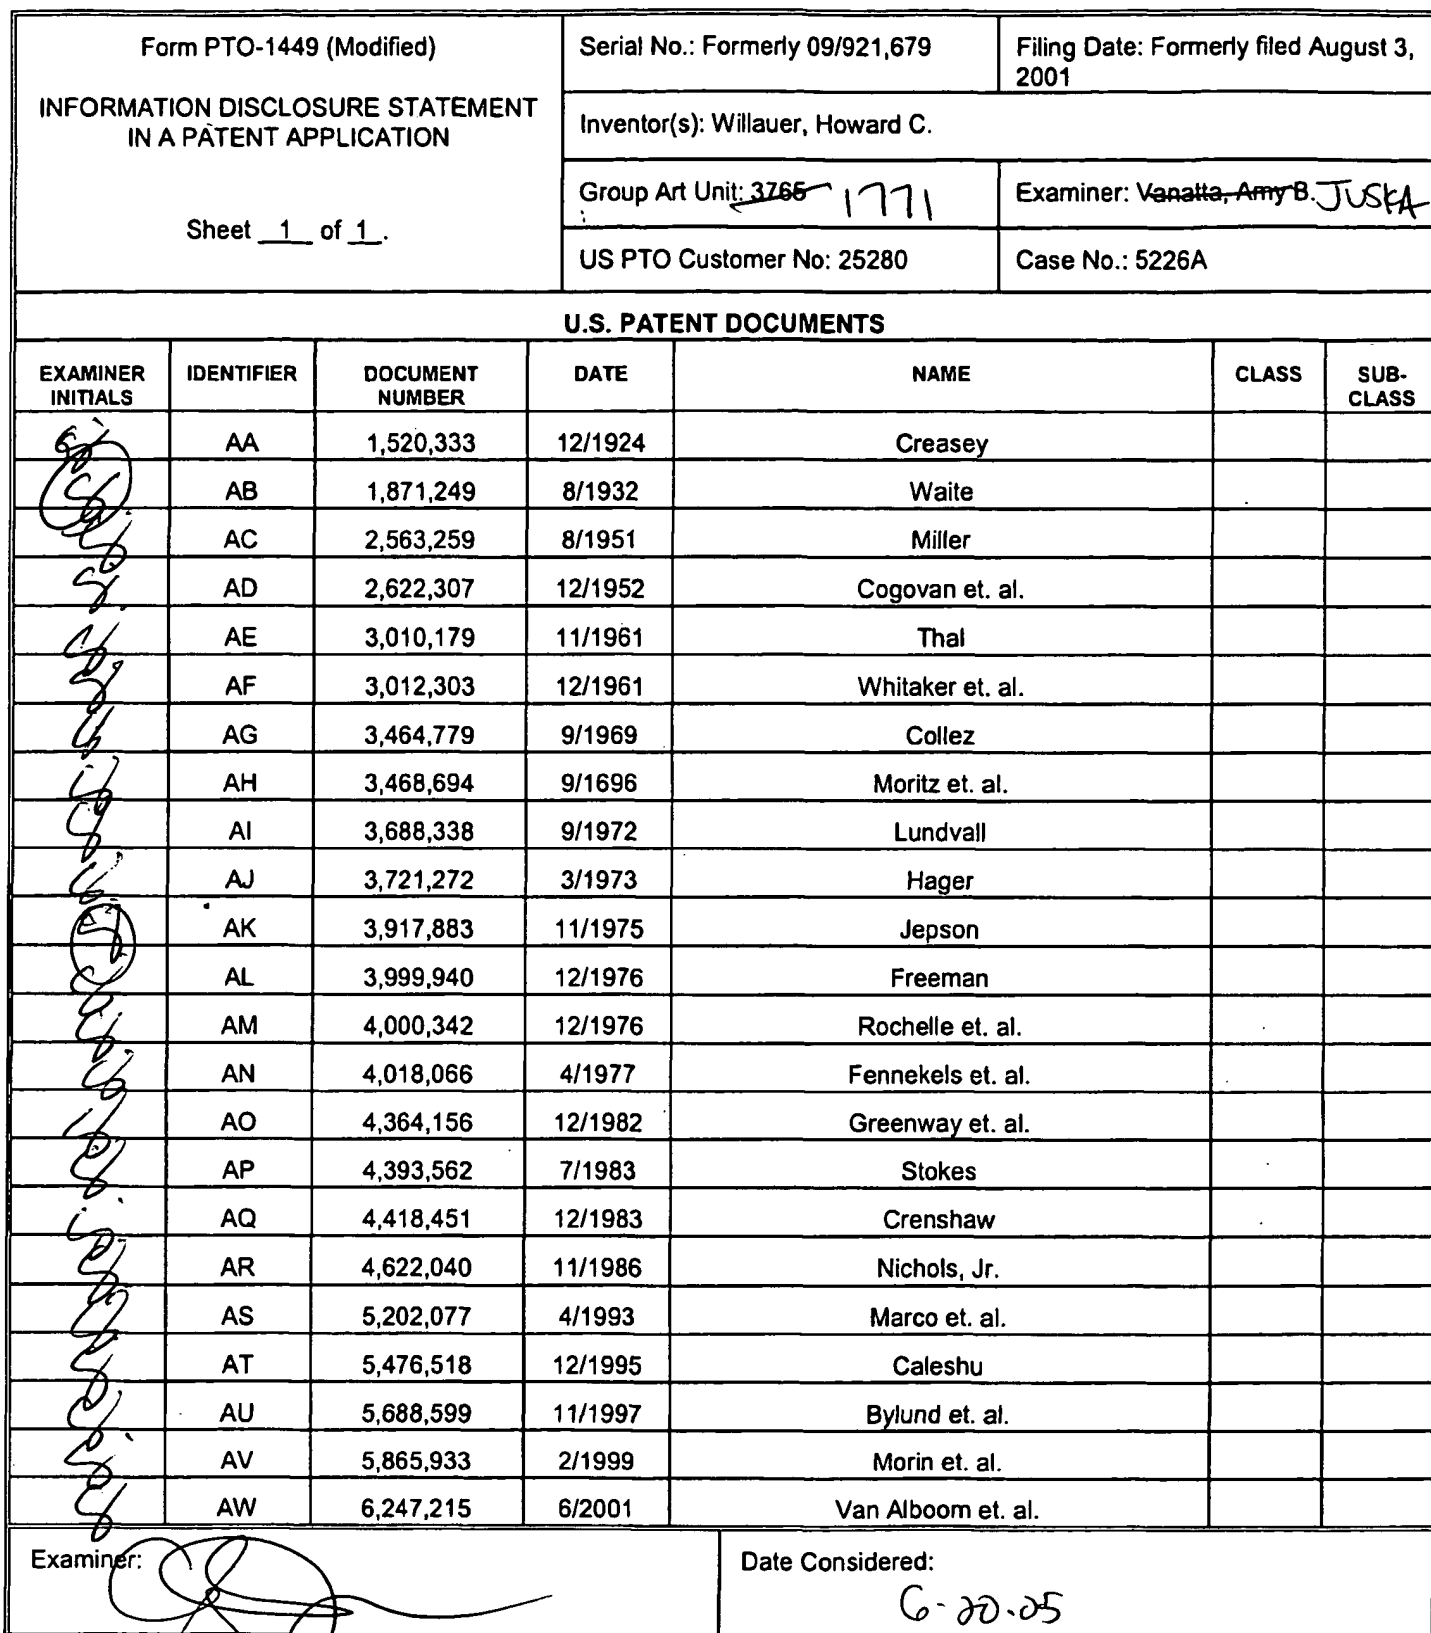 Form PTO-1449 (Modified)
INFORMATION DISCLOSURE STATEMENT
IN A PATENT APPLICATION
Sheet 1 of 1.
Serial No.: Formerly 09/921,679
Filing Date: Formerly filed August 3,
2001
Inventor(s): Willauer, Howard C.
Group Art Unit: 3765 1771
Examiner: Vanatta, Amy B. JUSKA
US PTO Customer No: 25280
Case No.: 5226A
U.S. PATENT DOCUMENTS
EXAMINER INITIALS IDENTIFIER DOCUMENT NUMBER DATE NAME CLASS SUB-CLASS
AA 1,520,333 12/1924 Creasey
AB 1,871,249 8/1932 Waite
AC 2,563,259 8/1951 Miller
AD 2,622,307 12/1952 Cogovan et. al.
AE 3,010,179 11/1961 Thal
AF 3,012,303 12/1961 Whitaker et. al.
AG 3,464,779 9/1969 Collez
AH 3,468,694 9/1696 Moritz et. al.
AI 3,688,338 9/1972 Lundvall
AJ 3,721,272 3/1973 Hager
AK 3,917,883 11/1975 Jepson
AL 3,999,940 12/1976 Freeman
AM 4,000,342 12/1976 Rochelle et. al.
AN 4,018,066 4/1977 Fennekels et. al.
AO 4,364,156 12/1982 Greenway et. al.
AP 4,393,562 7/1983 Stokes
AQ 4,418,451 12/1983 Crenshaw
AR 4,622,040 11/1986 Nichols, Jr.
AS 5,202,077 4/1993 Marco et. al.
AT 5,476,518 12/1995 Caleshu
AU 5,688,599 11/1997 Bylund et. al.
AV 5,865,933 2/1999 Morin et. al.
AW 6,247,215 6/2001 Van Alboom et. al.
Examiner:
Date Considered:
6-20-05